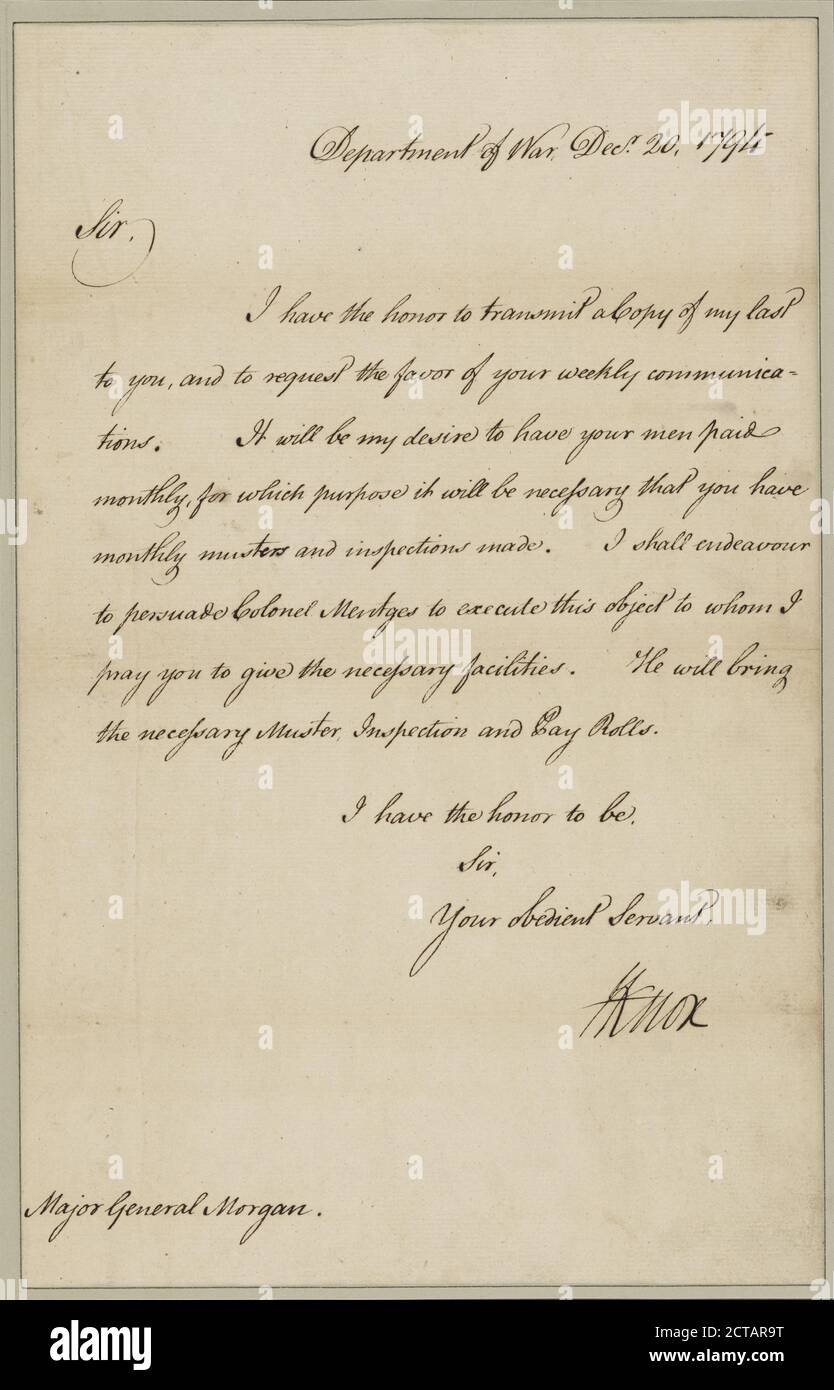 Department of War, Decr. 20, 1794
Sir,
I have the honor to transmit a Copy of my last
to you, and to request the favor of your weekly communica=
tions. It will be my desire to have your men paid
monthly, for which purpose it will be neceſsary that you have
monthly musters and inspections made. I shall endeavour
to persuade Colonel Mentges to execute this object to whom I
pray you to give the neceſsary facilities. He will bring
the neceſsary Muster, Inspection and Pay Rolls.
I have the honor to be,
Sir,
Your obedient Servant,
HKnox
Major General Morgan.
alamy
Image ID: 2CTAR9T
www.alamy.com